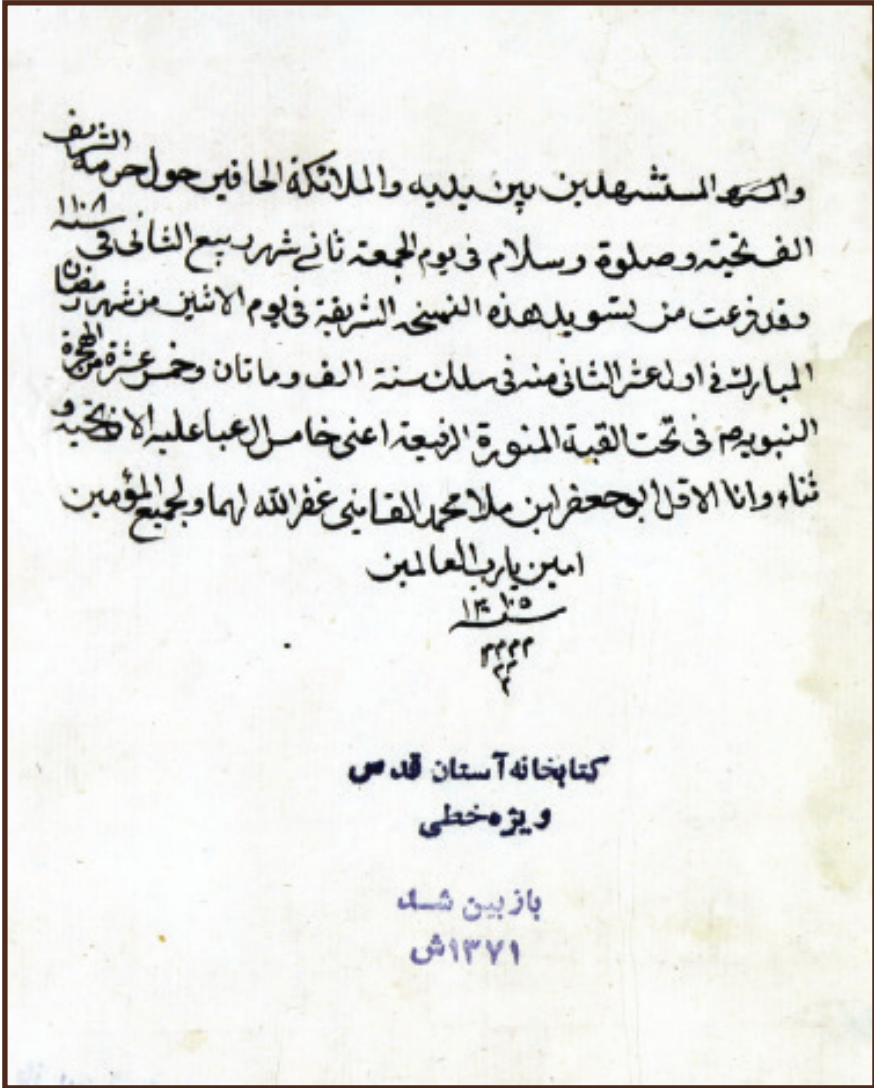 والشهداء المستشهدين بين يديه والملائكة الحافين حول حرمه الشريف
الف تحيته وصلوة وسلام فى يوم الجمعة ثانے شهر ربيع الثانى فى سنه ١١٠٨
وقد فرغت من تسويد هذه النسخه الشريفة فى يوم الاثنين من شهر رمضان
المبارك فے اول عشر الثانى منه فى سلك سنة الف وماتان وخمس عشرة من الهجرة
النبويه م فى تحت القبة المنورة الرفيعة اعنى خامس ال عبا عليه الاف تحيه و
ثناء وانا الاقل ابو جعفر ابن ملا محمد القاينى غفر الله لهما ولجميع المؤمنين
امين يا رب العالمين
سنه
كتابخانه آستان قدس
ويژه خطى
بازبين شد
١٣٧١ش